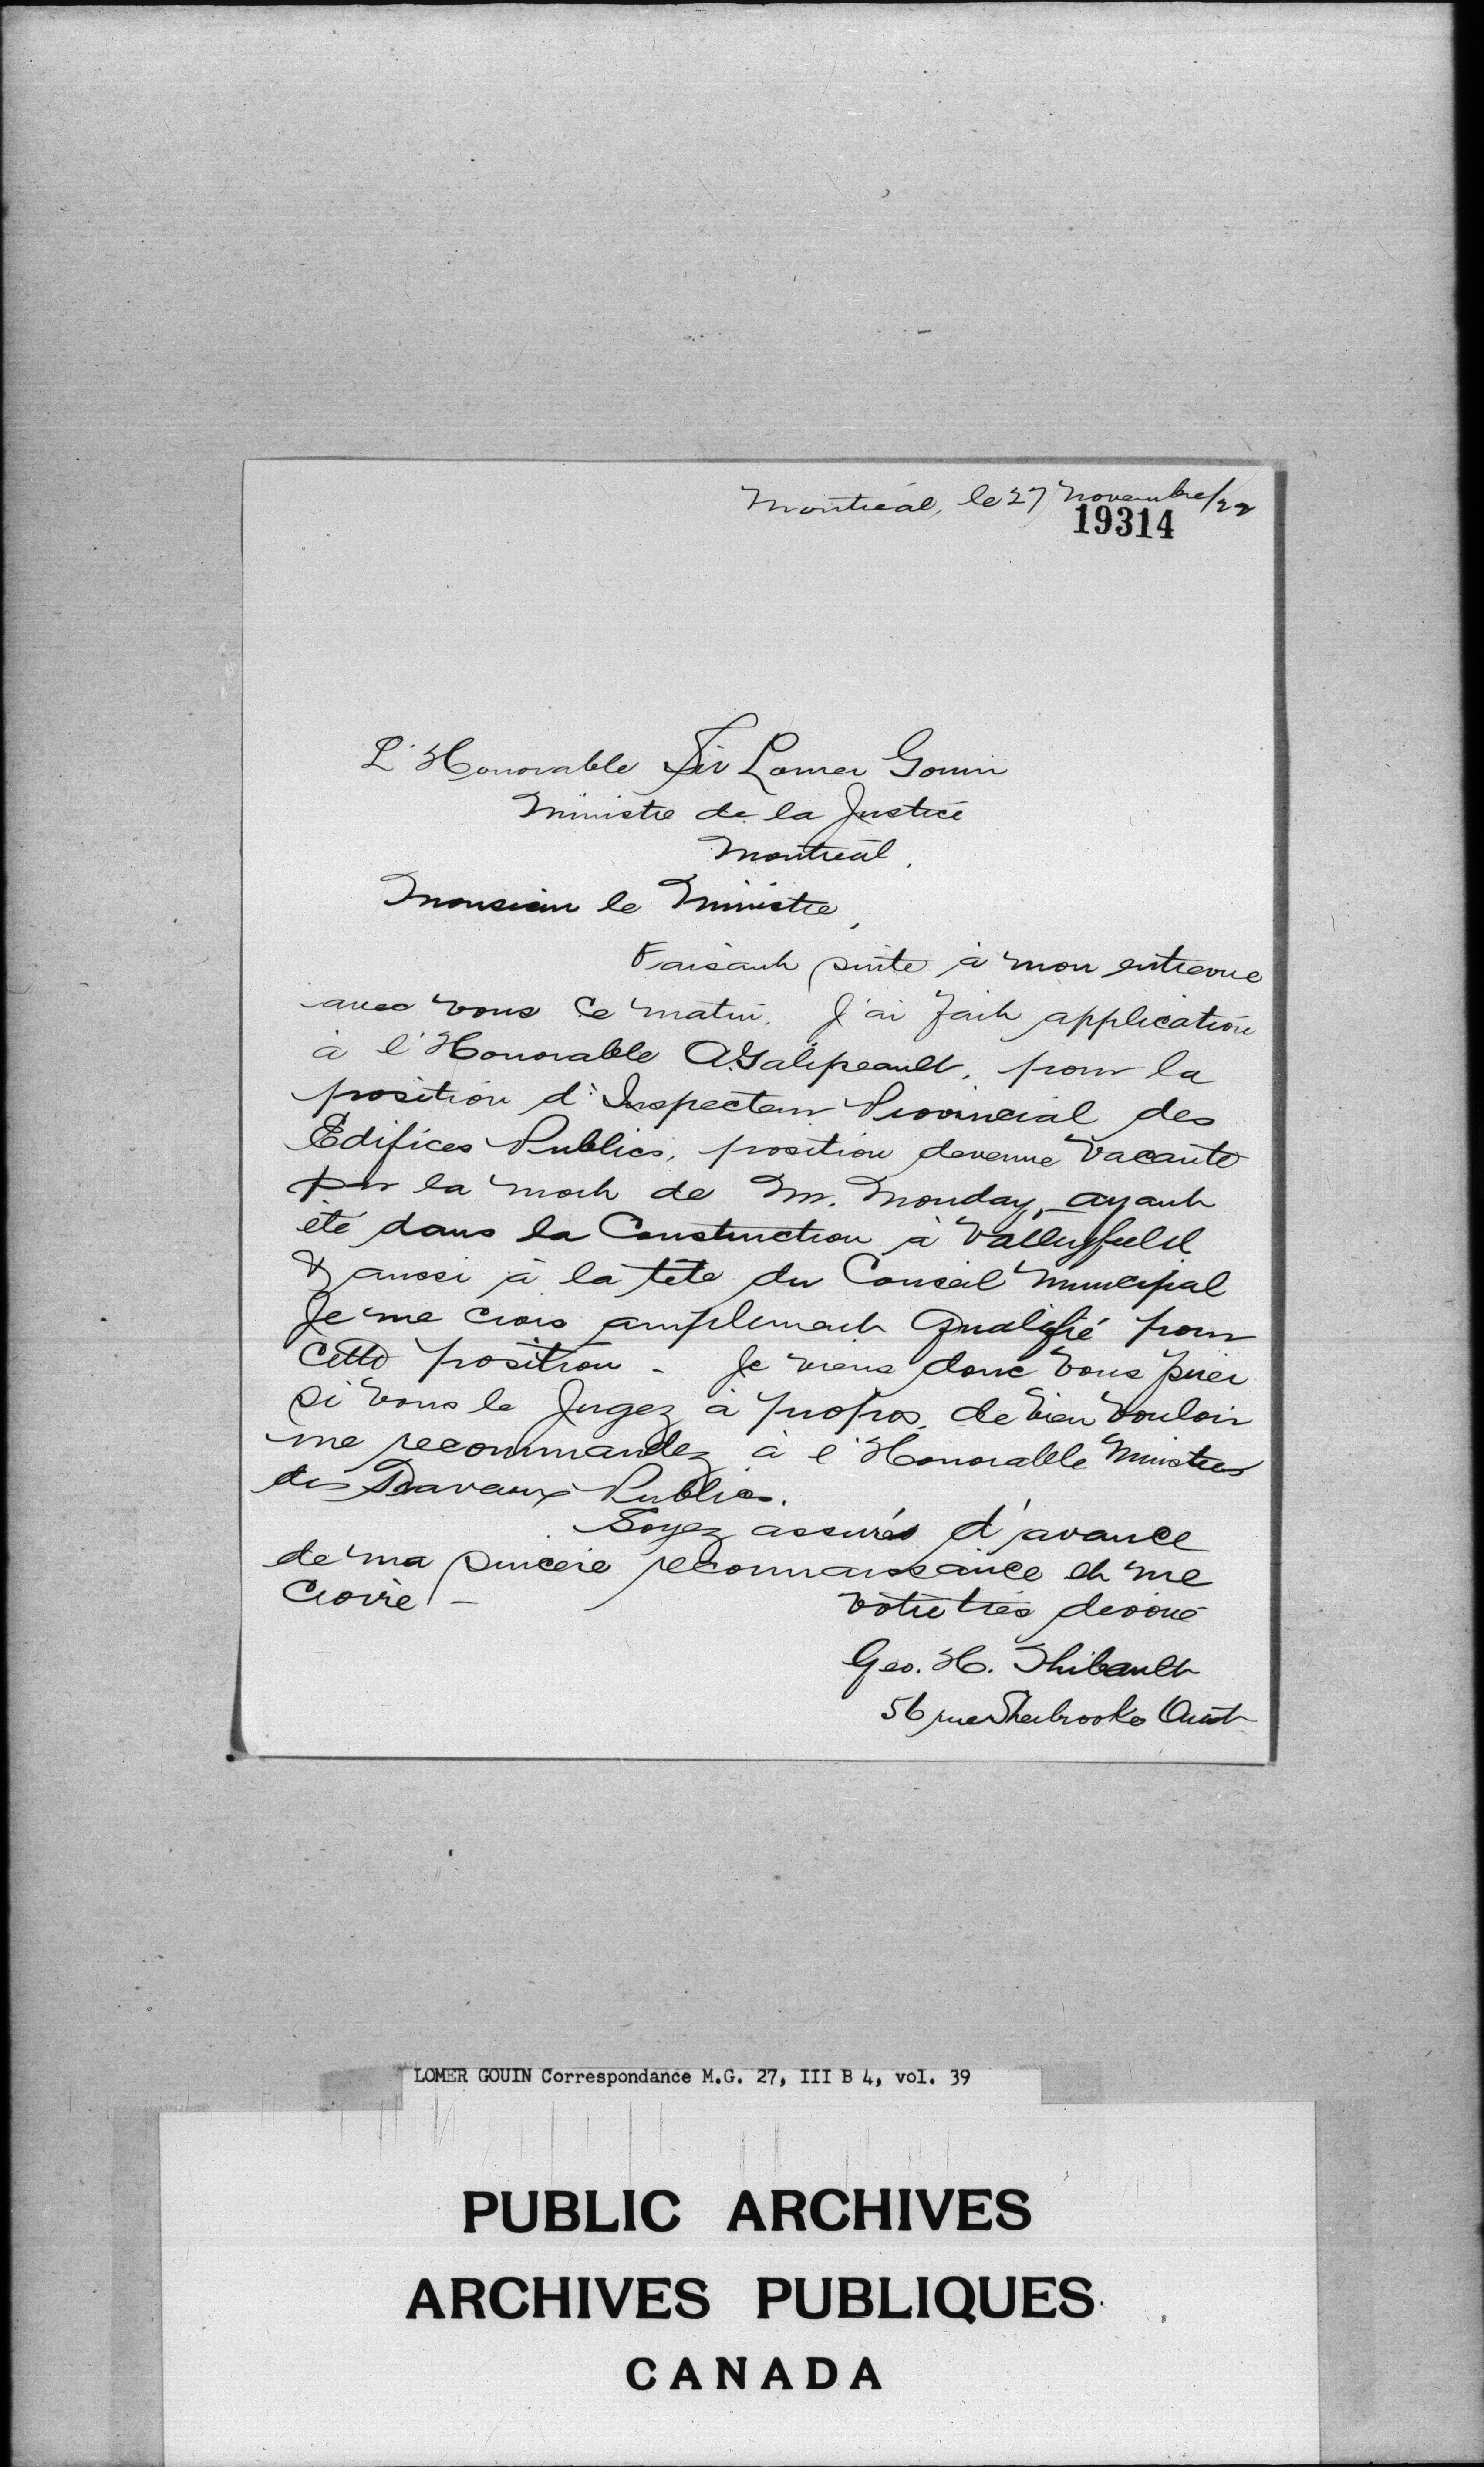 Montréal, le 27 Novembre/22
19314
L'Honorable Sir Lomer Gouin
Ministre de la Justice
Montréal.
Monsieur le Ministre,
Faisant suite à mon entrevue
avec vous ce matin. J'ai fait application
à l'Honorable A. Galipeault, pour la
position d'Inspecteur Provincial des
Edifices Publics, position devenue vacante
par la mort de Mr. Monday, ayant
été dans la Construction à Valleyfield
& aussi à la tête du Conseil Municipal
Je me crois amplement qualifié pour
cette position - Je viens donc vous prier
si vous le Jugez à propos, de bien vouloir
me recommandez à l'Honorable Ministres
des Travaux Publics.
Soyez assurés d'avance
de ma sincère reconnaissance et me
Croire -
Votre très dévoué
Geo. H. Thibault
56 rue Sherbrooke Ouest
LOMER GOUIN Correspondance M.G. 27, III B 4, vol. 39
PUBLIC ARCHIVES
ARCHIVES PUBLIQUES
CANADA